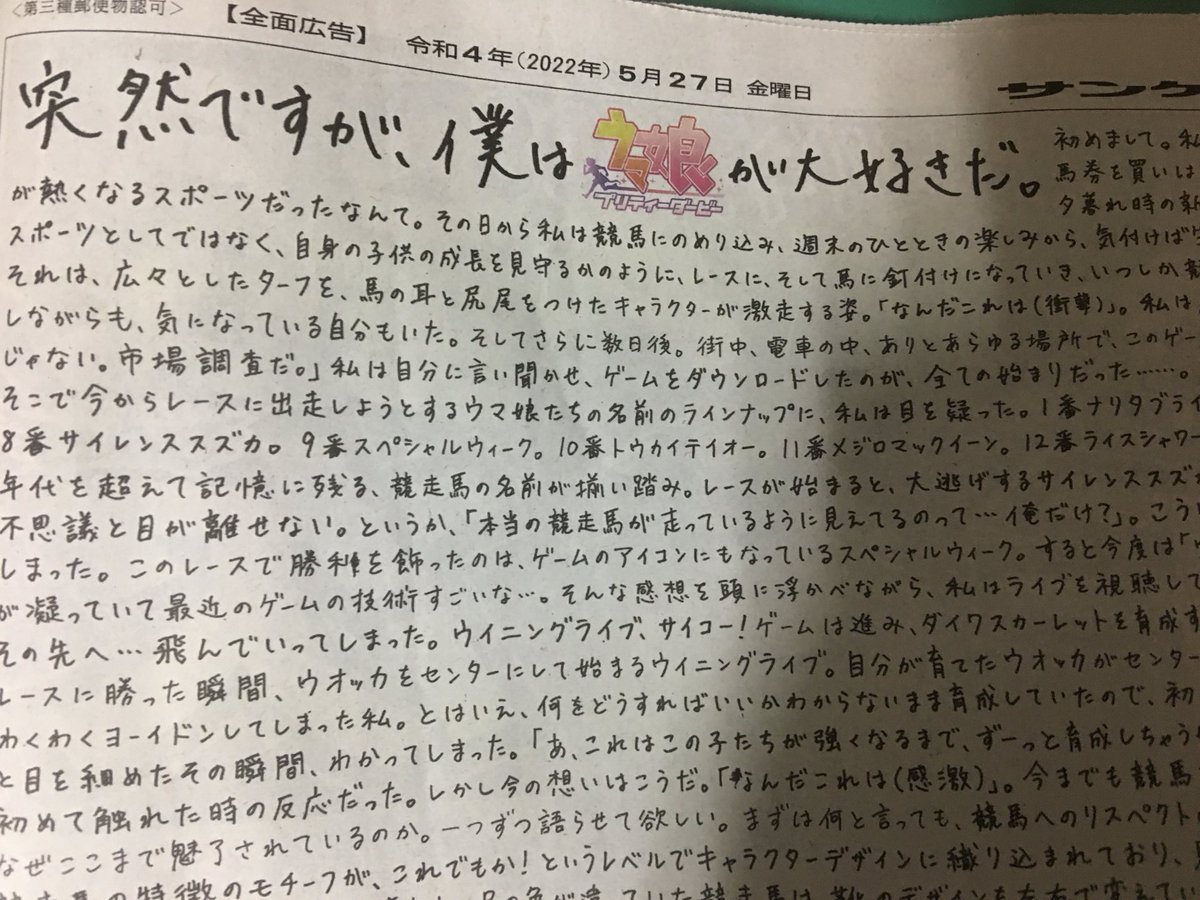 ＜第三種郵便物認可＞
【全面広告】 令和4年（2022年）5月27日 金曜日
サンケ
突然ですが、僕はウマ娘プリティーダービーが大好きだ。
初めまして。私
馬券を買いは
夕暮れ時の新
が熱くなるスポーツだったなんて。その日から私は競馬にのめり込み、週末のひとときの楽しみから、気付けば
スポーツとしてではなく、自身の子供の成長を見守るかのように、レースに、そして馬に釘付けになっていき、いつしか競
それは、広々としたターフを、馬の耳と尻尾をつけたキャラクターが激走する姿。「なんだこれは(衝撃)」。私は
しながらも、気になっている自分もいた。そしてさらに数日後。街中、電車の中、ありとあらゆる場所で、このゲー
じゃない。市場調査だ。」私は自分に言い聞かせ、ゲームをダウンロードしたのが、全ての始まりだった……。
そこで今からレースに出走しようとするウマ娘たちの名前のラインナップに、私は目を疑った。1番ナリタブライ
8番サイレンススズカ。9番スペシャルウィーク。10番トウカイテイオー。11番メジロマックイーン。12番ライスシャワー
年代を超えて記憶に残る、競走馬の名前が揃い踏み。レースが始まると、大逃げするサイレンススズ
不思議と目が離せない。というか、「本当の競走馬が走っているように見えてるのって…俺だけ?」。こう
しまった。このレースで勝利を飾ったのは、ゲームのアイコンにもなっているスペシャルウィーク。すると今度は「
が凝っていて最近のゲームの技術すごいな…。そんな感想を頭に浮かべながら、私はライブを視聴して
その先へ…飛んでいってしまった。ウイニングライブ、サイコー!ゲームは進み、ダイワスカーレットを育成す
レースに勝った瞬間、ウオッカをセンターにして始まるウイニングライブ。自分が育てたウオッカがセンター
わくわくヨーイドンしてしまった私。とはいえ、何をどうすればいいかわからないまま育成していたので、初
と目を細めたその瞬間、わかってしまった。「あ、これはこの子たちが強くなるまで、ずーっと育成しちゃう
初めて触れた時の反応だった。しかし今の想いはこうだ。「なんだこれは(感激)」。今までも競馬
なぜここまで魅了されているのか。一つずつ語らせて欲しい。まずは何と言っても、競馬へのリスペクト
の特徴のモチーフが、これでもか!というレベルでキャラクターデザインに織り込まれており、